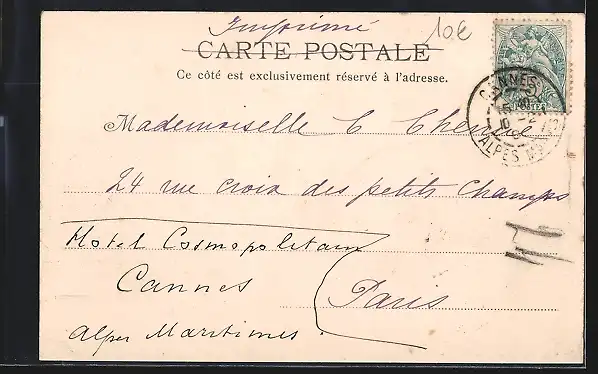 Imprimé
10€
CARTE POSTALE
Ce côté est exclusivement réservé à l'adresse.
CANNES
ALPES MMES
Mademoiselle C
24 rue croix des petits Champs
Hotel Cosmopolitain
Cannes
Paris
Alpes Maritimes.